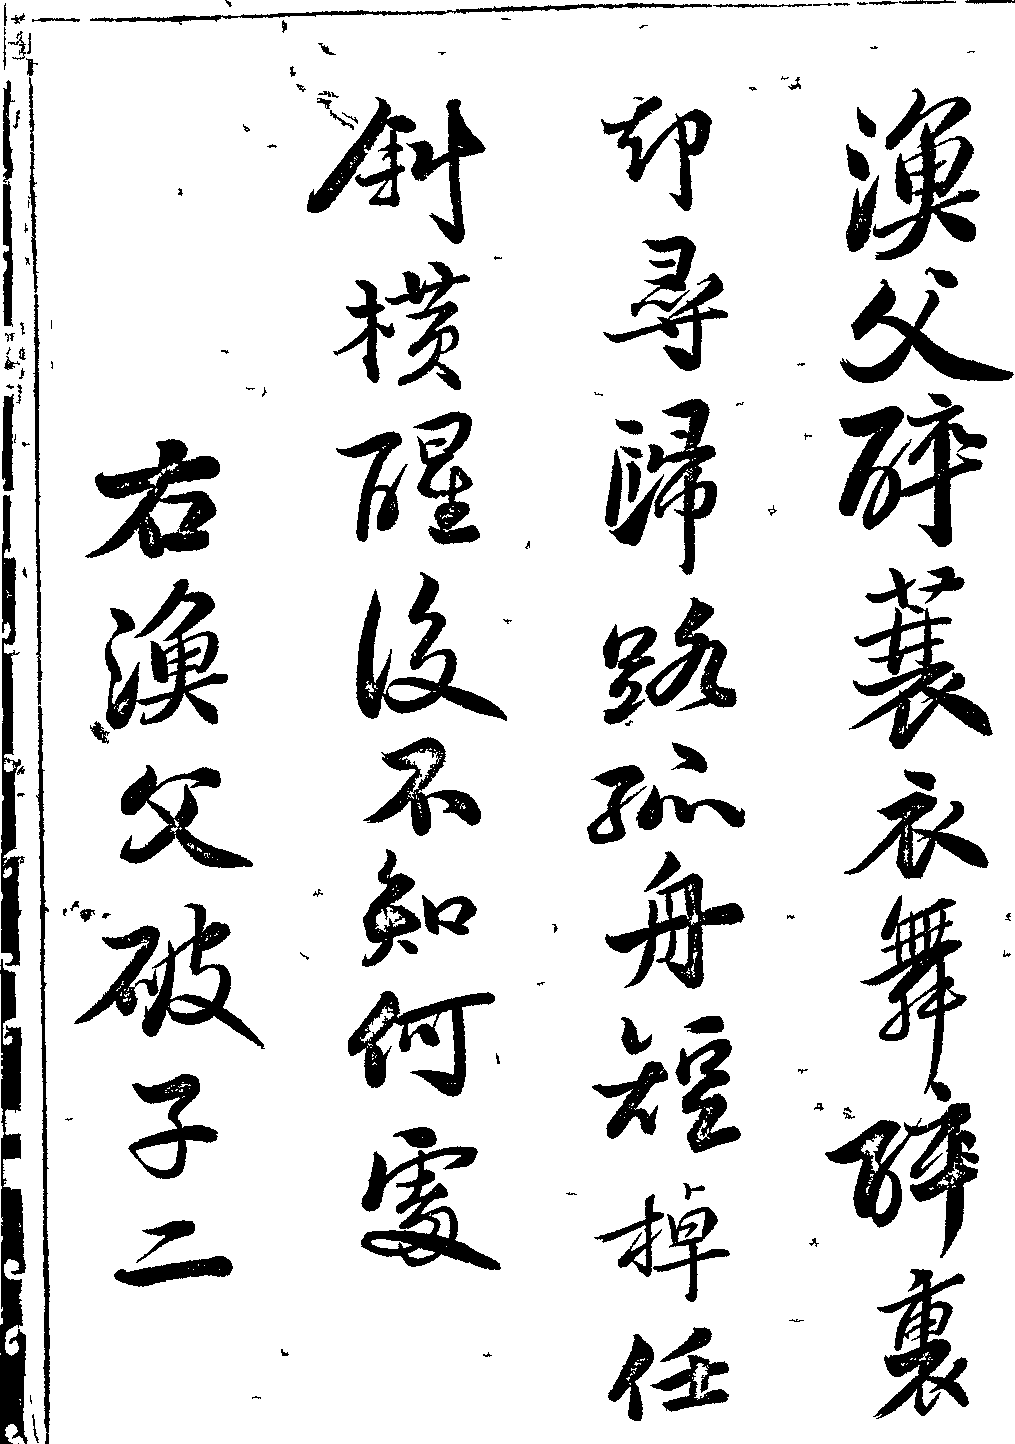 漁父醉蓑衣舞醉裏
却尋歸路孤舟短棹任
斜橫醒後不知何處
右漁父破子二